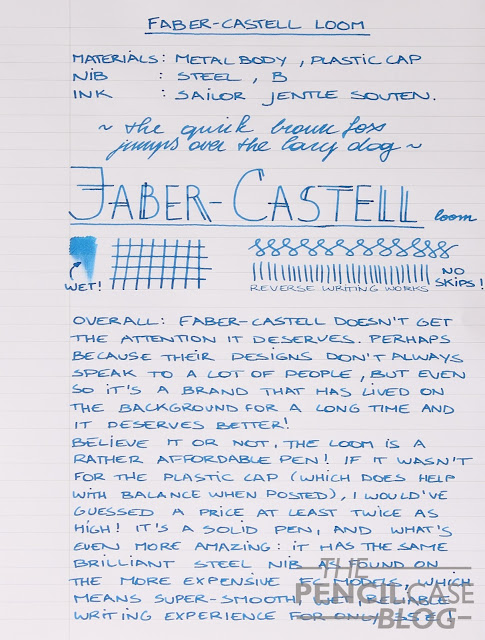 FABER-CASTELL LOOM
MATERIALS: METAL BODY, PLASTIC CAP
NIB : STEEL, B
INK : SAILOR JENTLE SOUTEN.
~ the quick brown fox
jumps over the lazy dog ~
FABER-CASTELL loom
WET!
REVERSE WRITING WORKS
NO
SKIPS!
OVERALL: FABER-CASTELL DOESN'T GET
THE ATTENTION IT DESERVES. PERHAPS
BECAUSE THEIR DESIGNS DON'T ALWAYS
SPEAK TO A LOT OF PEOPLE, BUT EVEN
SO IT'S A BRAND THAT HAS LIVED ON
THE BACKGROUND FOR A LONG TIME AND
IT DESERVES BETTER!
BELIEVE IT OR NOT, THE LOOM IS A
RATHER AFFORDABLE PEN! IF IT WASN'T
FOR THE PLASTIC CAP (WHICH DOES HELP
WITH BALANCE WHEN POSTED), I WOULD'VE
GUESSED A PRICE AT LEAST TWICE AS
HIGH! IT'S A SOLID PEN, AND WHAT'S
EVEN MORE AMAZING: IT HAS THE SAME
BRILLIANT STEEL NIB AS FOUND ON
THE MORE EXPENSIVE FC MODELS, WHICH
MEANS SUPER-SMOOTH, WET, RELIABLE
WRITING EXPERIENCE FOR ONLY
THE
PENCILCASE
BLOG